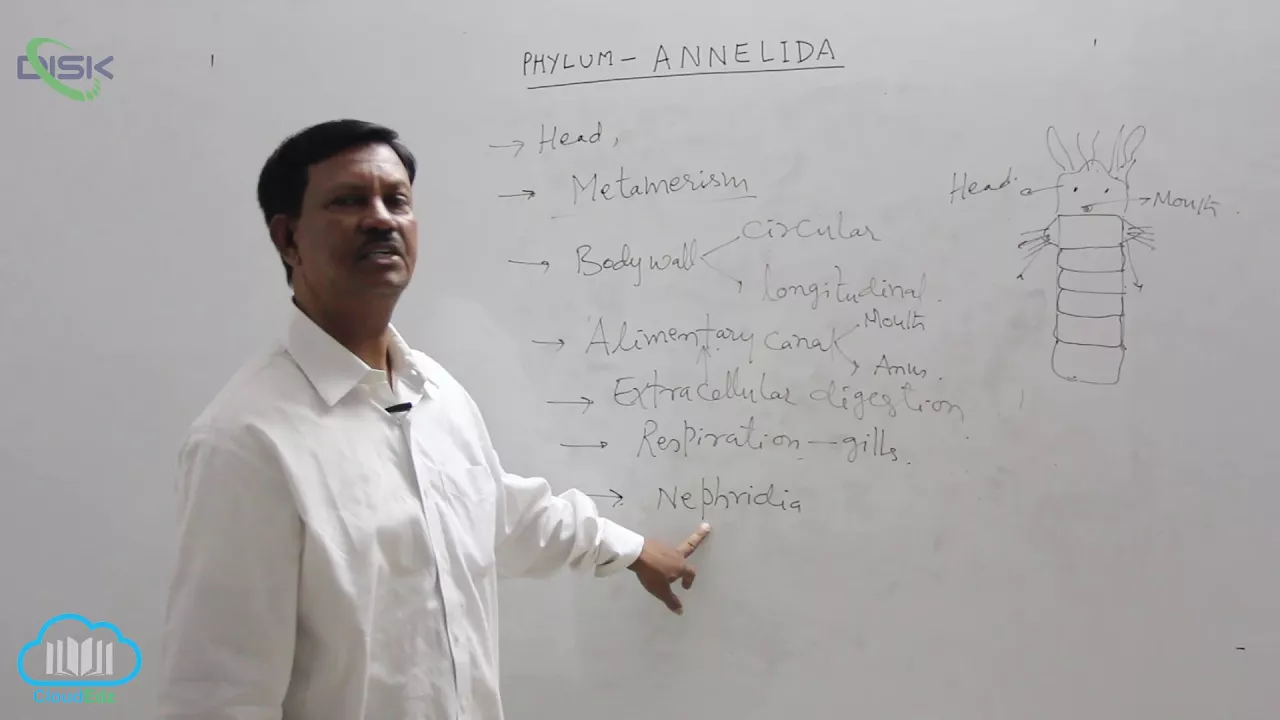 DISK
PHYLUM - ANNELIDA
→ Head,
→ Metamerism
→ Body wall
circular
longitudinal.
→ Alimentary canal
Mouth
Anus.
→ Extracellular digestion
→ Respiration - gills.
→ Nephridia
Head
Mouth
CloudEdz